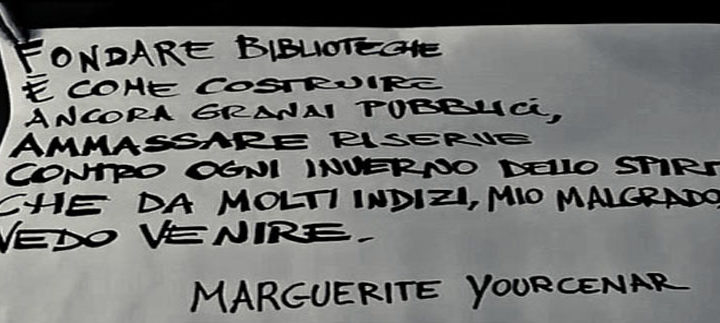 FONDARE BIBLIOTECHE
È COME COSTRUIRE
ANCORA GRANAI PUBBLICI,
AMMASSARE RISERVE
CONTRO OGNI INVERNO DELLO SPIRIT
CHE DA MOLTI INDIZI, MIO MALGRADO,
VEDO VENIRE.
MARGUERITE YOURCENAR